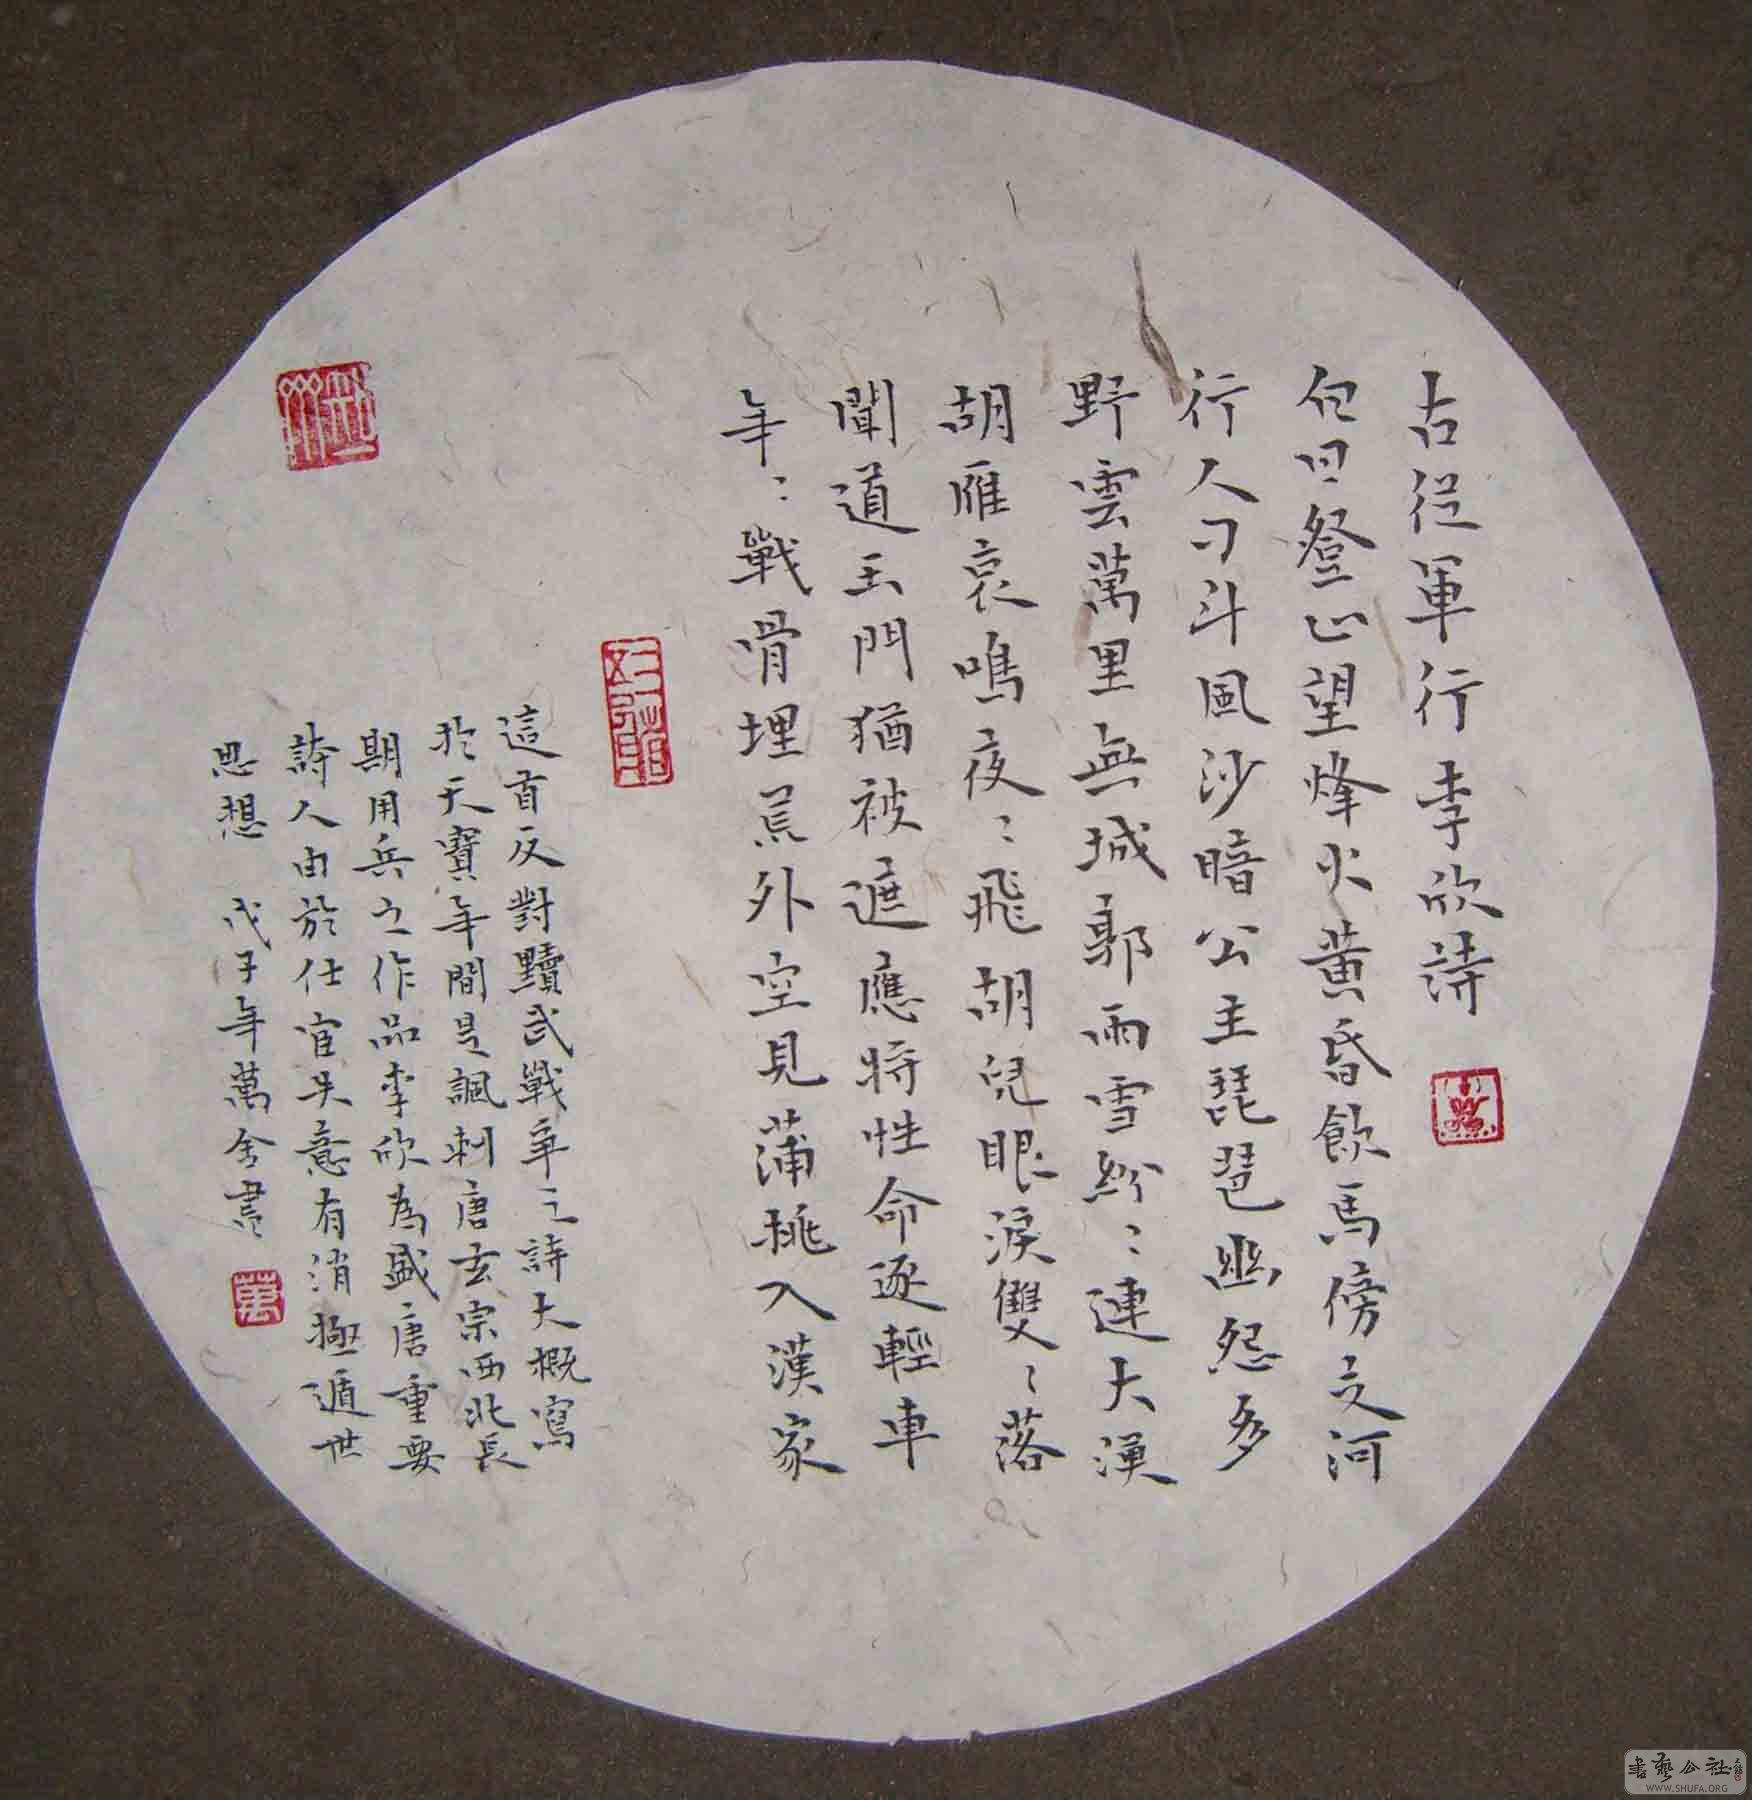 古從軍行李欣詩
白日登山望烽火黄昏飲馬傍交河
行人刁斗風沙暗公主琵琶幽怨多
野雲萬里無城郭雨雪紛〻連大漠
胡雁哀鳴夜〻飛胡兒眼淚雙〻落
聞道玉門猶被遮應將性命逐輕車
年〻戰骨埋荒外空見蒲桃入漢家
這首反對黷武戰爭之詩大概寫
於天寶年間是諷刺唐玄宗西北長
期用兵之作品李欣為盛唐重要
詩人由於仕宦失意有消極遁世
思想 戊子年萬舍書
萬
書藝公社
WWW.SHUFA.ORG